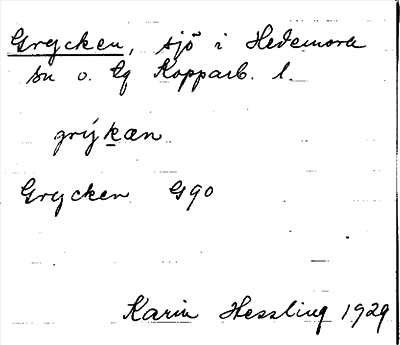 Grycken, sjö i Hedemora
sn o. lg Kopparb. l.
grýkæn
Grycken G90
Karin Hessling 1929